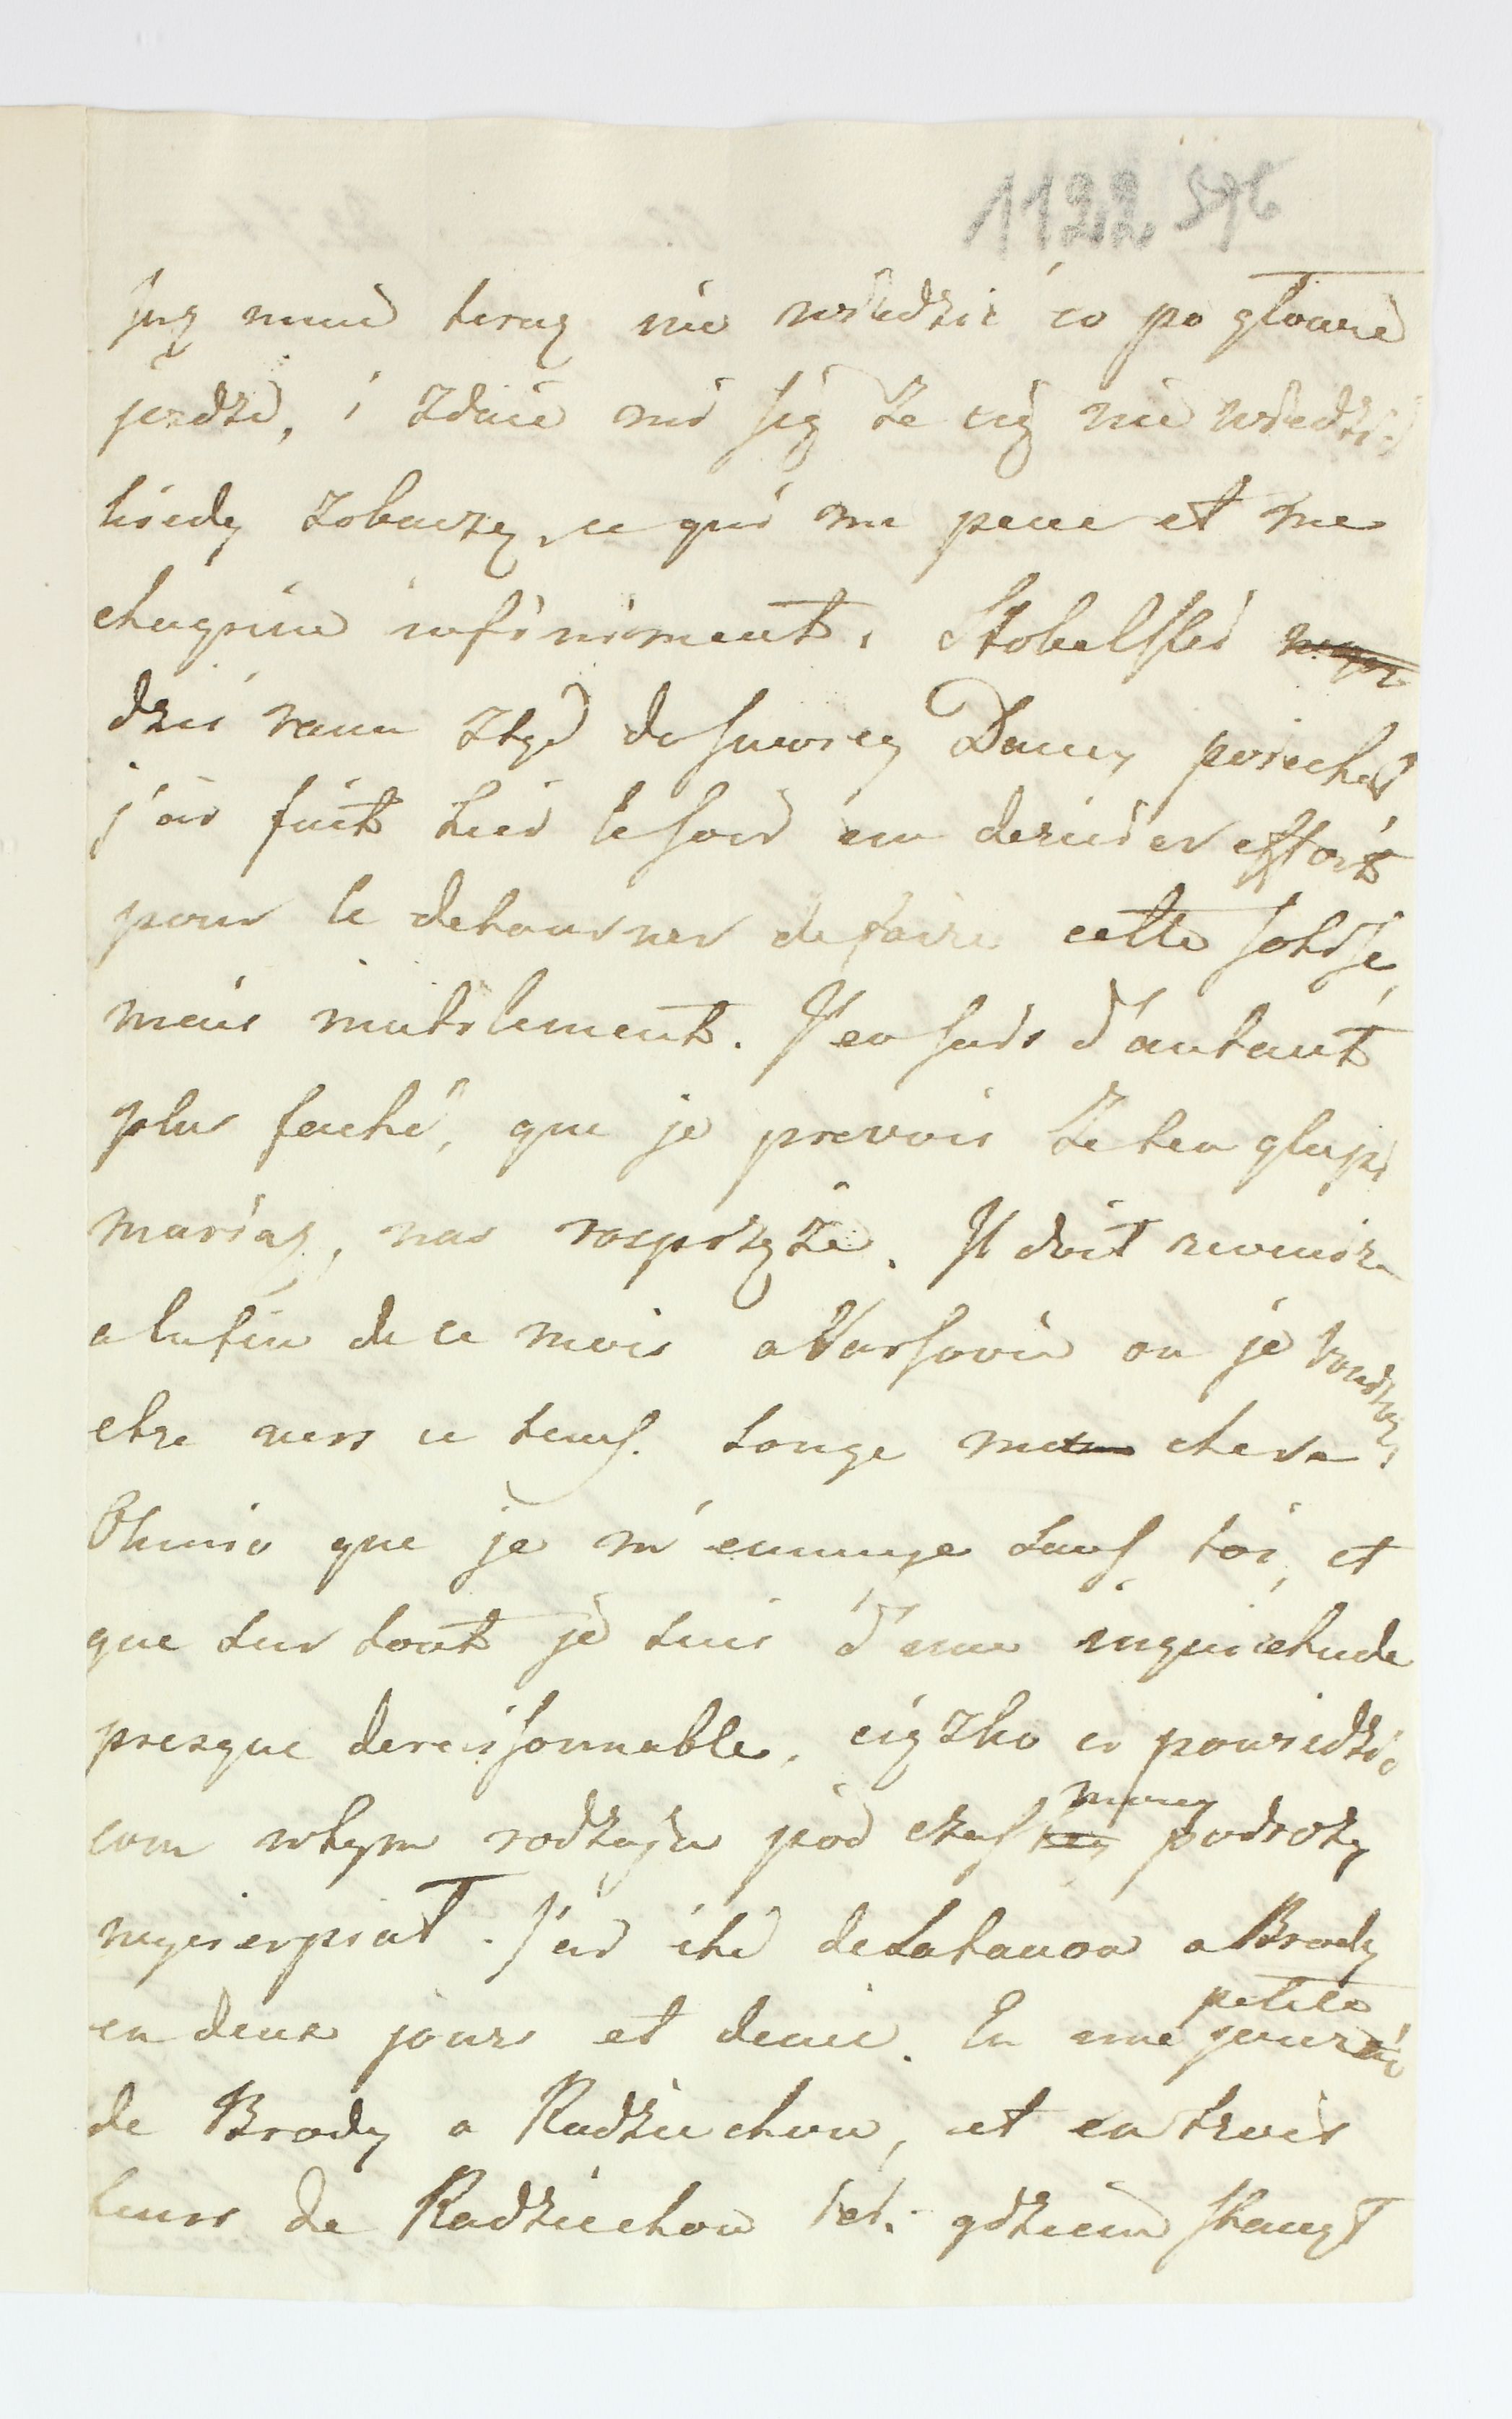 1122 576
już mnie teraz nie wiedzić co po głowie
jezdzi, i zdaie mi się że cię nie wiedzić
kiedy zobaczę, ce qui me peine et me
chagrine infiniment. Stobelski
dziś rano ztąd do swoiey Damy poiechał
j'ai fait hier le soir un dernier effort
pour le detourner de faire cette sotise,
mais inutilement. J'en suis d'autant
plus faché, que je prevois że ten głupi
mariaż, nas rosprzęże. Il doit revenir
a la fin de ce mois a Varsovie ou je voudrois
etre vers ce tems. Songe ma chere
Olunia que je m'ennuye sans toi, et
que sur tout je suis d'une inquietude
presque deraisonnable. ciężko ci powiedzić
com wtym rodzaju pod czas moiey podroży
wycierpiał. J'ai été de Satanow a Brody
en deux jours et demie. En une petite journée
de Brody a Radziechow, et en trois
heurs de Radziechow ici. gdziem stanął